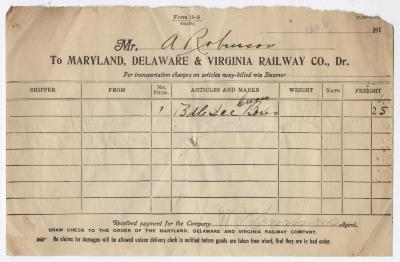 Form 11-S
Mr. A Robinson 191
To MARYLAND, DELAWARE & VIRGINIA RAILWAY CO., Dr.
For transportation charges on articles way-billed via Steamer
SHIPPER FROM No. Pkgs. ARTICLES AND MARKS WEIGHT RATE FREIGHT
1 25
Received payment for the Company Agent.
DRAW CHECK TO THE ORDER OF THE MARYLAND, DELAWARE AND VIRGINIA RAILWAY COMPANY.
No claims for damages will be allowed unless delivery clerk is notified before goods are taken from wharf, that they are in bad order.